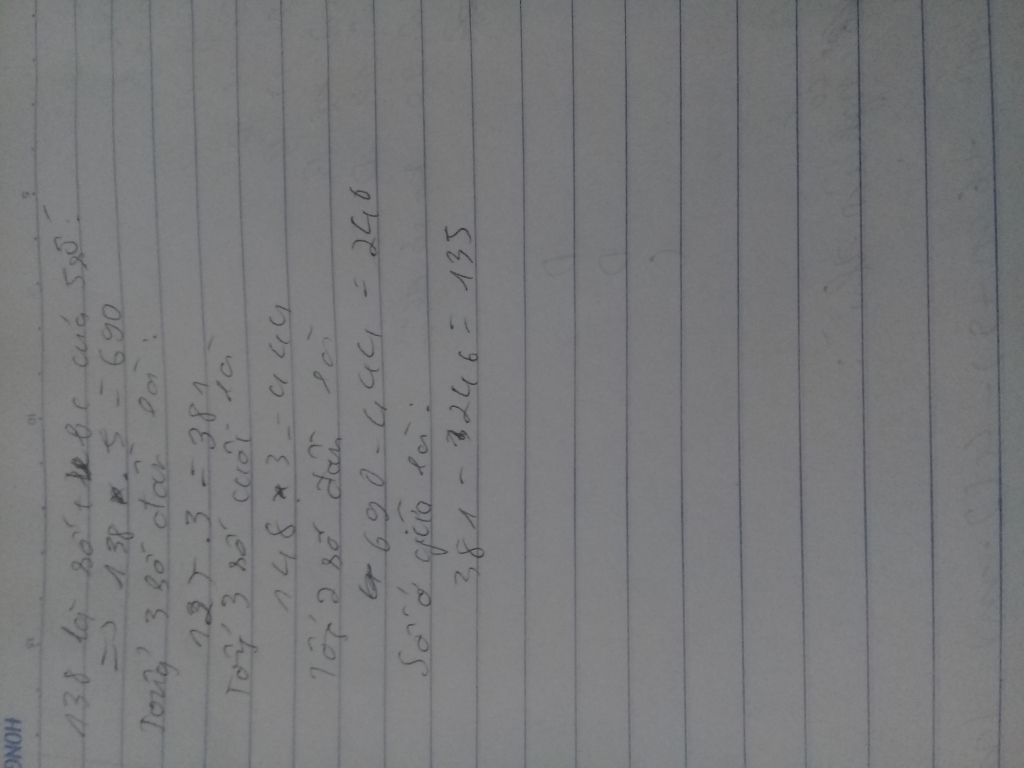 HONG
138 là số tbc của 5 số.
=> 138 . 5 = 690
Tổng 3 số đầu là:
127 . 3 = 381
Tổng 3 số cuối là
148 * 3 = 444
Tổg 2 số đầu là
690 - 444 = 246
Số ở giữa là:
381 - 246 = 135